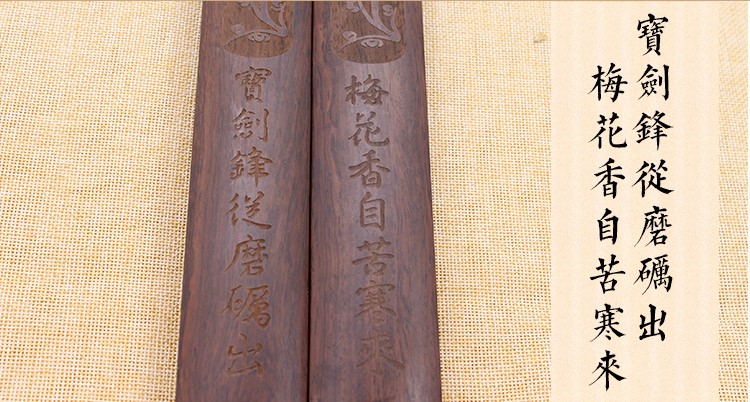 寶劍鋒從磨礪出
梅花香自苦寒來
寶劍鋒從磨礪出
梅花香自苦寒來